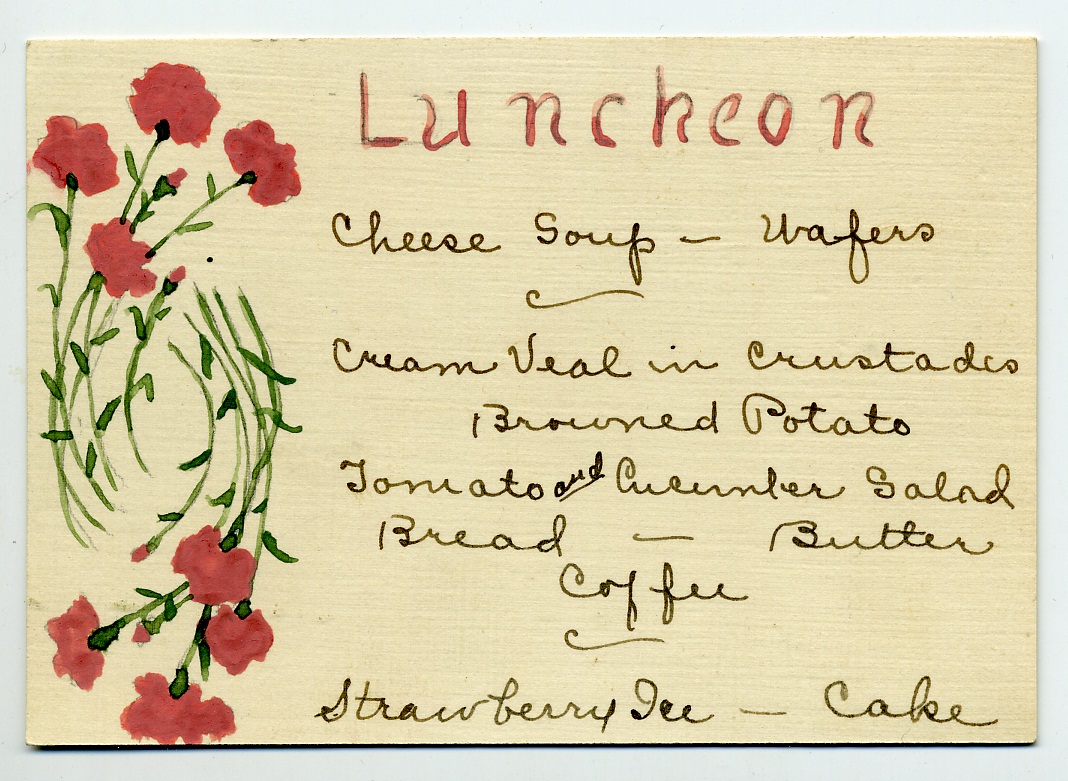 Luncheon
Cheese Soup – Wafers
Cream Veal in Crustades
Browned Potato
Tomato and Cucumber Salad
Bread – Butter
Coffee
Strawberry Ice – Cake